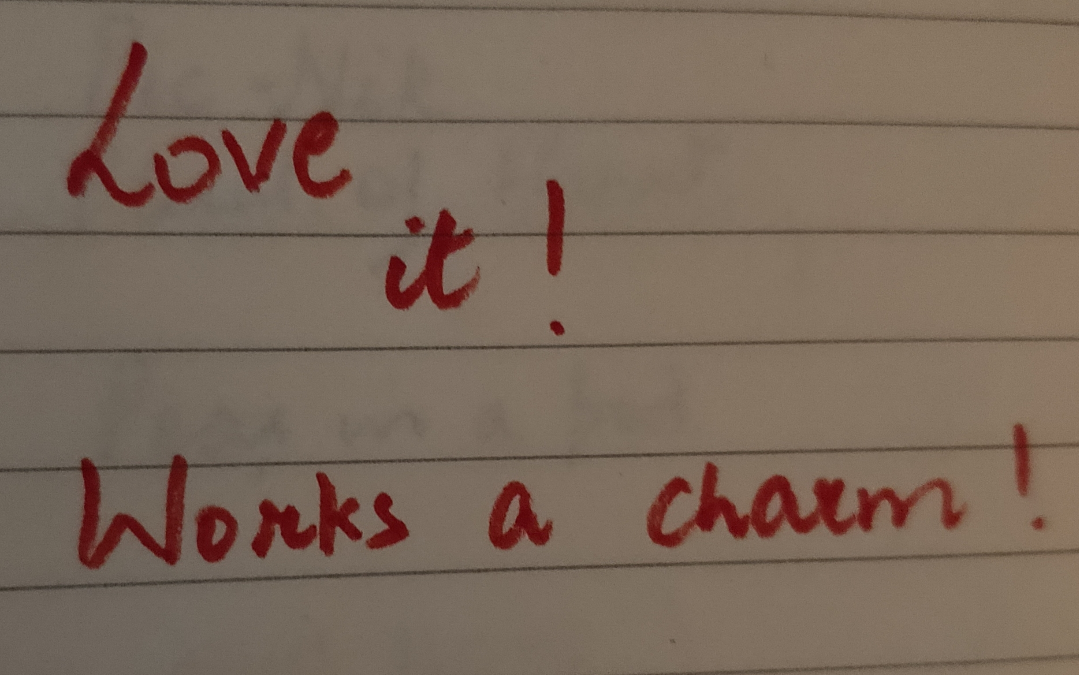 Love
it!
Works a charm!